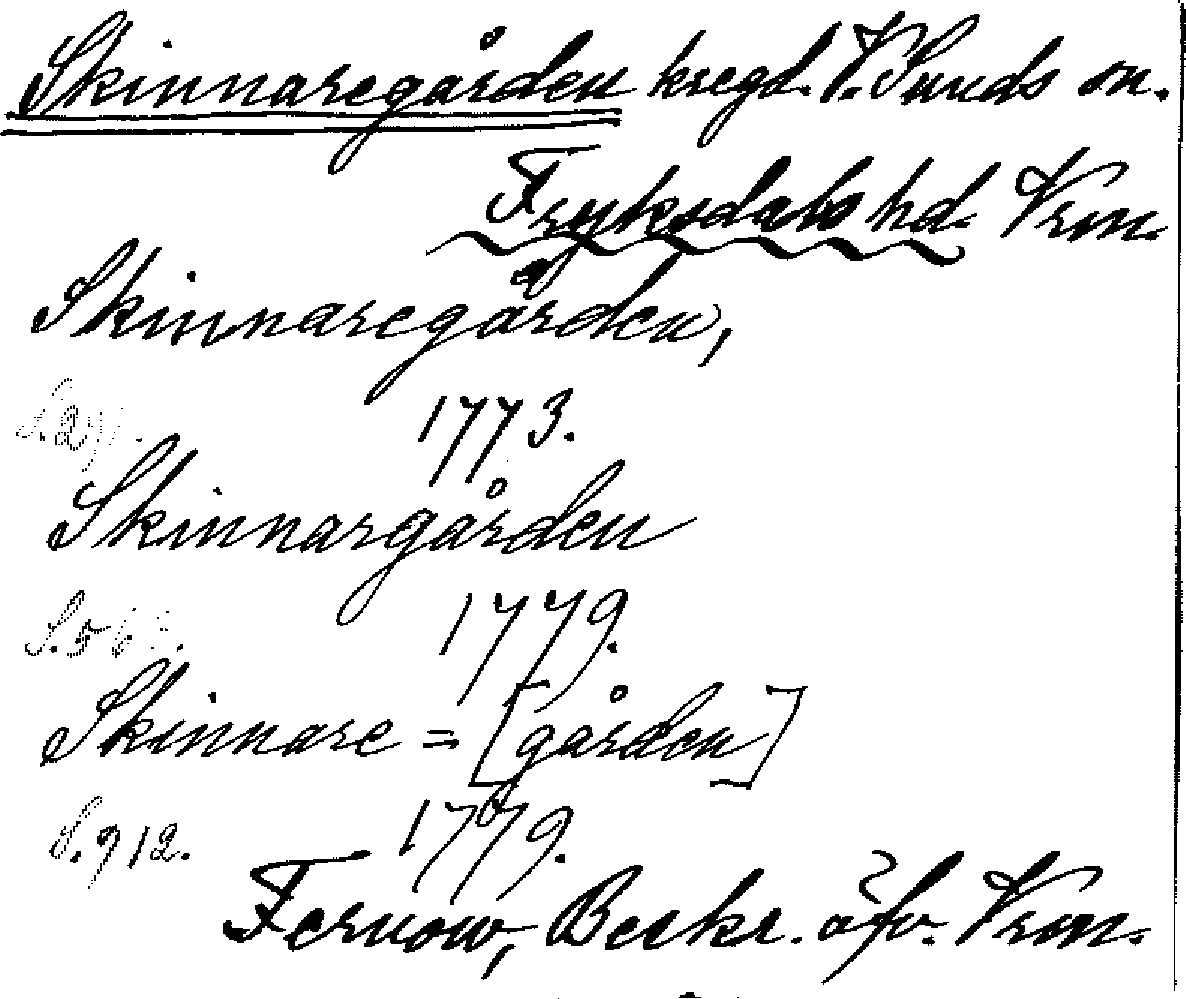 Skinnaregården kregd. V. Sunds sn.
Fryksdals hd. Vrm.
Skinnaregården,
1773.
Skinnargården
1779.
Skinnare = [gården]
S. 912. 1779.
Fernow, Beskr. öfv. Vrm.